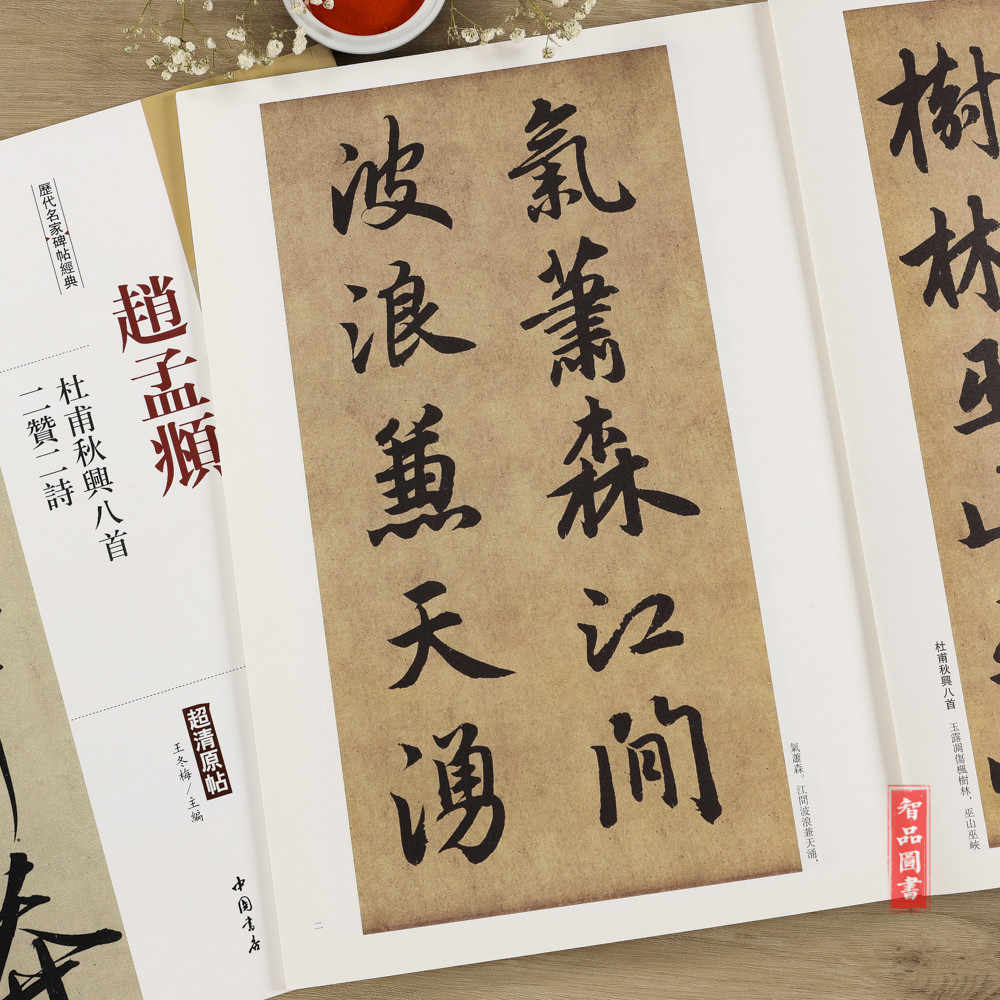 歷代名家碑帖經典
趙孟頫
杜甫秋興八首
二贊二詩
超清原帖
王冬梅/主編
中國書店
樹林巫山
杜甫秋興八首 玉露凋傷楓樹林，巫山巫峽
氣蕭森江間
波浪兼天湧
氣蕭森。江間波浪兼天涌，
二
智品圖書